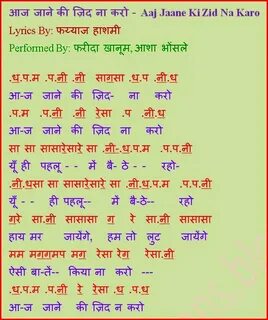 आज जाने की ज़िद ना करो - Aaj Jaane Ki Zid Na Karo
Lyrics By: फय्याज हाशमी
Performed By: फरीदा खानूम,आशा भोंसले
.ध़.प.म .प.नी .नी सागसा .ध.प .नी.ध
आ-ज जाने की ज़िद- ना करो
.ध़.प.म .प.नी रे रेसा .प .नी.ध
आ-ज जाने की ज़िद ना करो
सा सा सासारेसारे सा .नी-.ध़.प.म .प.प.नी
यूँ ही पहलू - - में बै-ठे - - रहो-
.नी.धसा सा सासारेसारे सा .नी.ध़.प.म .प.प.नी
यूँ - - ही पहलू-- में बै-ठे-- रहो
गरे सा.नी सासासा ग रे सा.नी सासासा
हाय मर जायेंगे, हम तो लुट जायेंगे
मम मगगमप मग़ रेसा रेग़ रेसा.नी
ऐसी बा-तें-- किया ना करो ---
.ध़.प.म .प.नी रे रेसा .ध .प.ध
आ-ज जाने की ज़िद न करो